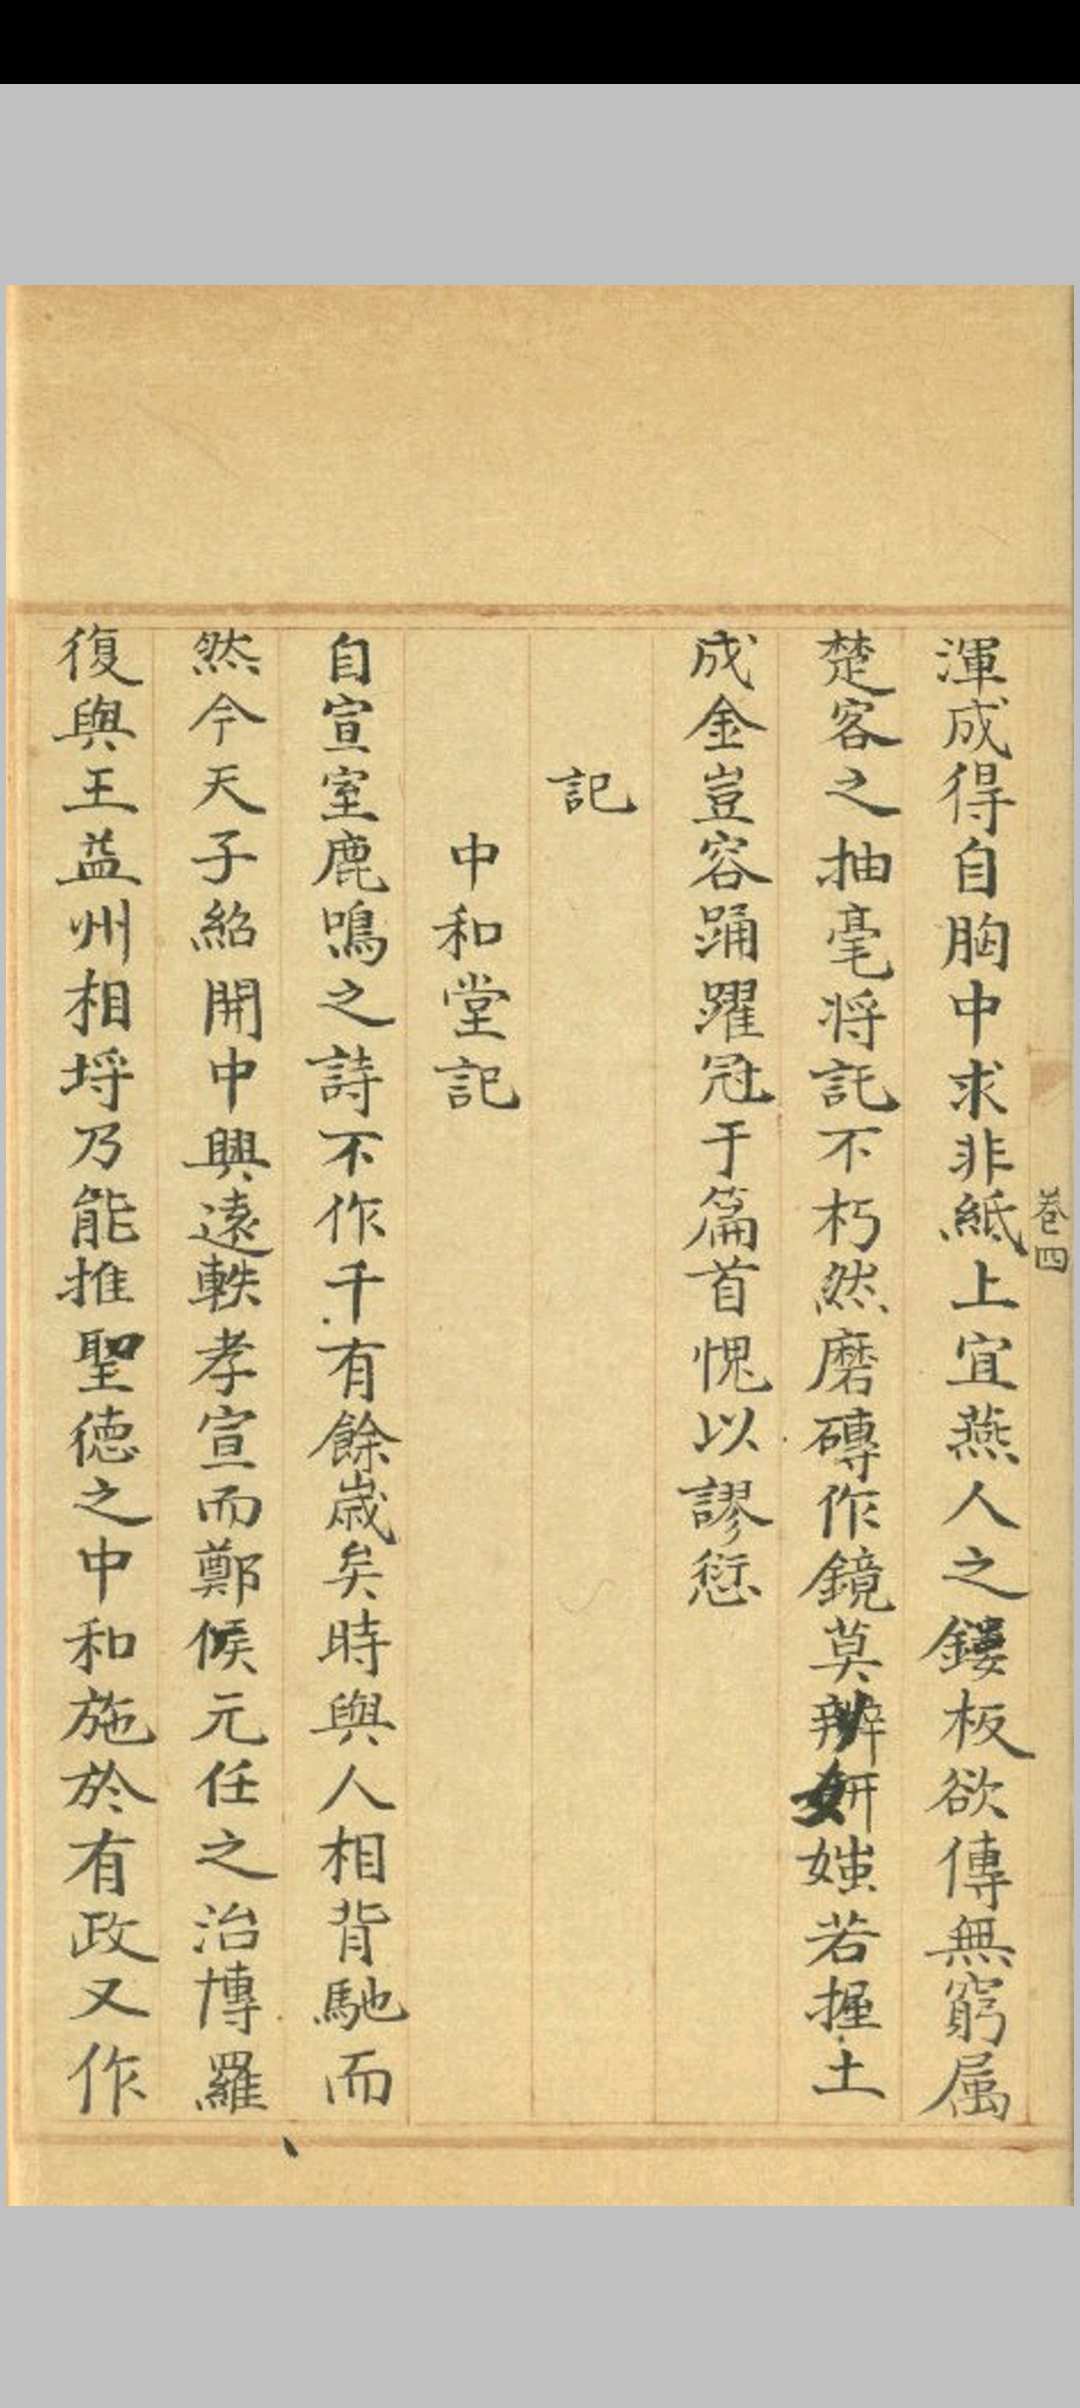 卷四
渾成得自胸中求非紙上宜燕人之鏤板欲傳無窮属
楚客之抽毫将託不朽然磨磚作鏡莫辨妍媸若握土
成金豈容踊躍冠于篇首愧以謬愆
記
中和堂記
自宣室鹿鳴之詩不作千有餘歳矣時與人相背馳而
然今天子紹開中興遠軼孝宣而鄭候元任之治博羅
復與王益州相埒乃能推聖徳之中和施於有政又作